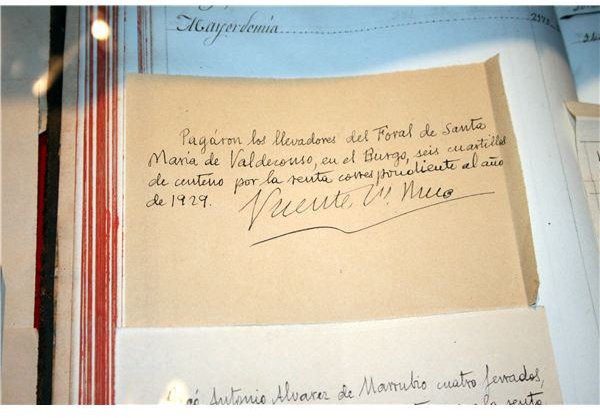 Mayordomía
Pagáron los llevadores del Foral de Santa
María de Valdeconso, en el Burgo, seis cuartillos
de centeno por la renta correspondiente al año
de 1929. Vicente
Antonio Alvarez de Marrubio cuatro ferrados,
la renta